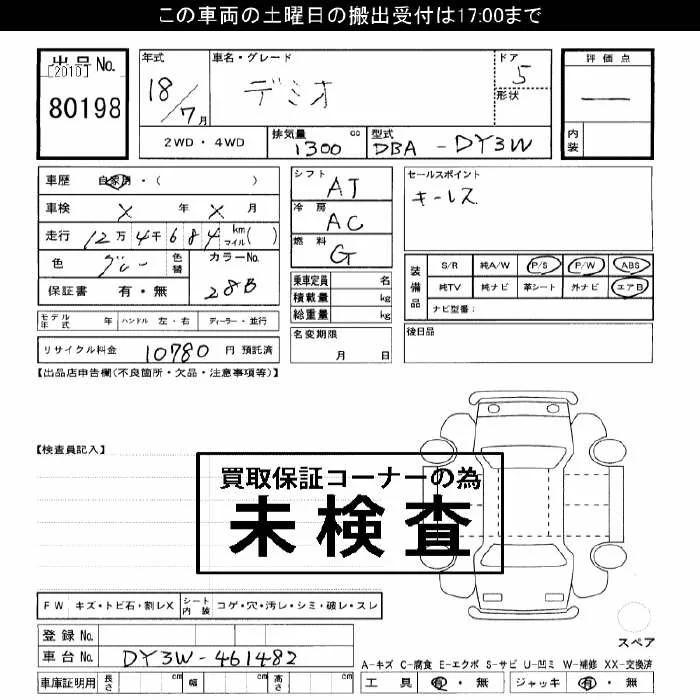 この車両の土曜日の搬出受付は17:00まで
出品No.
[2010]
80198
年式 18/7月
車名・グレード デミオ
ドア 5
形状
評価点 —
内装
2WD・4WD
排気量 1300 cc
型式 DBA-DY3W
車歴 自家用・( )
車検 X 年 X 月
走行 12万4千684 km マイル( )
色 グレー 色替
カラーNo. 28B
保証書 有・無
シフト AT
冷房 AC
燃料 G
乗車定員 名
積載量 kg
総重量 kg
セールスポイント
キーレス
装備品
S/R 純A/W P/S P/W ABS
純TV 純ナビ 革シート 外ナビ エアB
ナビ型番:
モデル年式 年 ハンドル 左・右 ディーラー・並行
名変期限 月 日
後日品
リサイクル料金 10780 円 預託済
【出品店申告欄(不良箇所・欠品・注意事項等)】
【検査員記入】
買取保証コーナーの為
未検査
FW キズ・トビ石・割レX シート内装 コゲ・穴・汚レ・シミ・破レ・スレ
スペア
登録No.
車台No. DY3W-461482
A-キズ C-腐食 E-エクボ S-サビ U-凹ミ W-補修 XX-交換済
車庫証明用 長さ cm 幅 cm 高さ cm
工具 有・無 ジャッキ 有・無